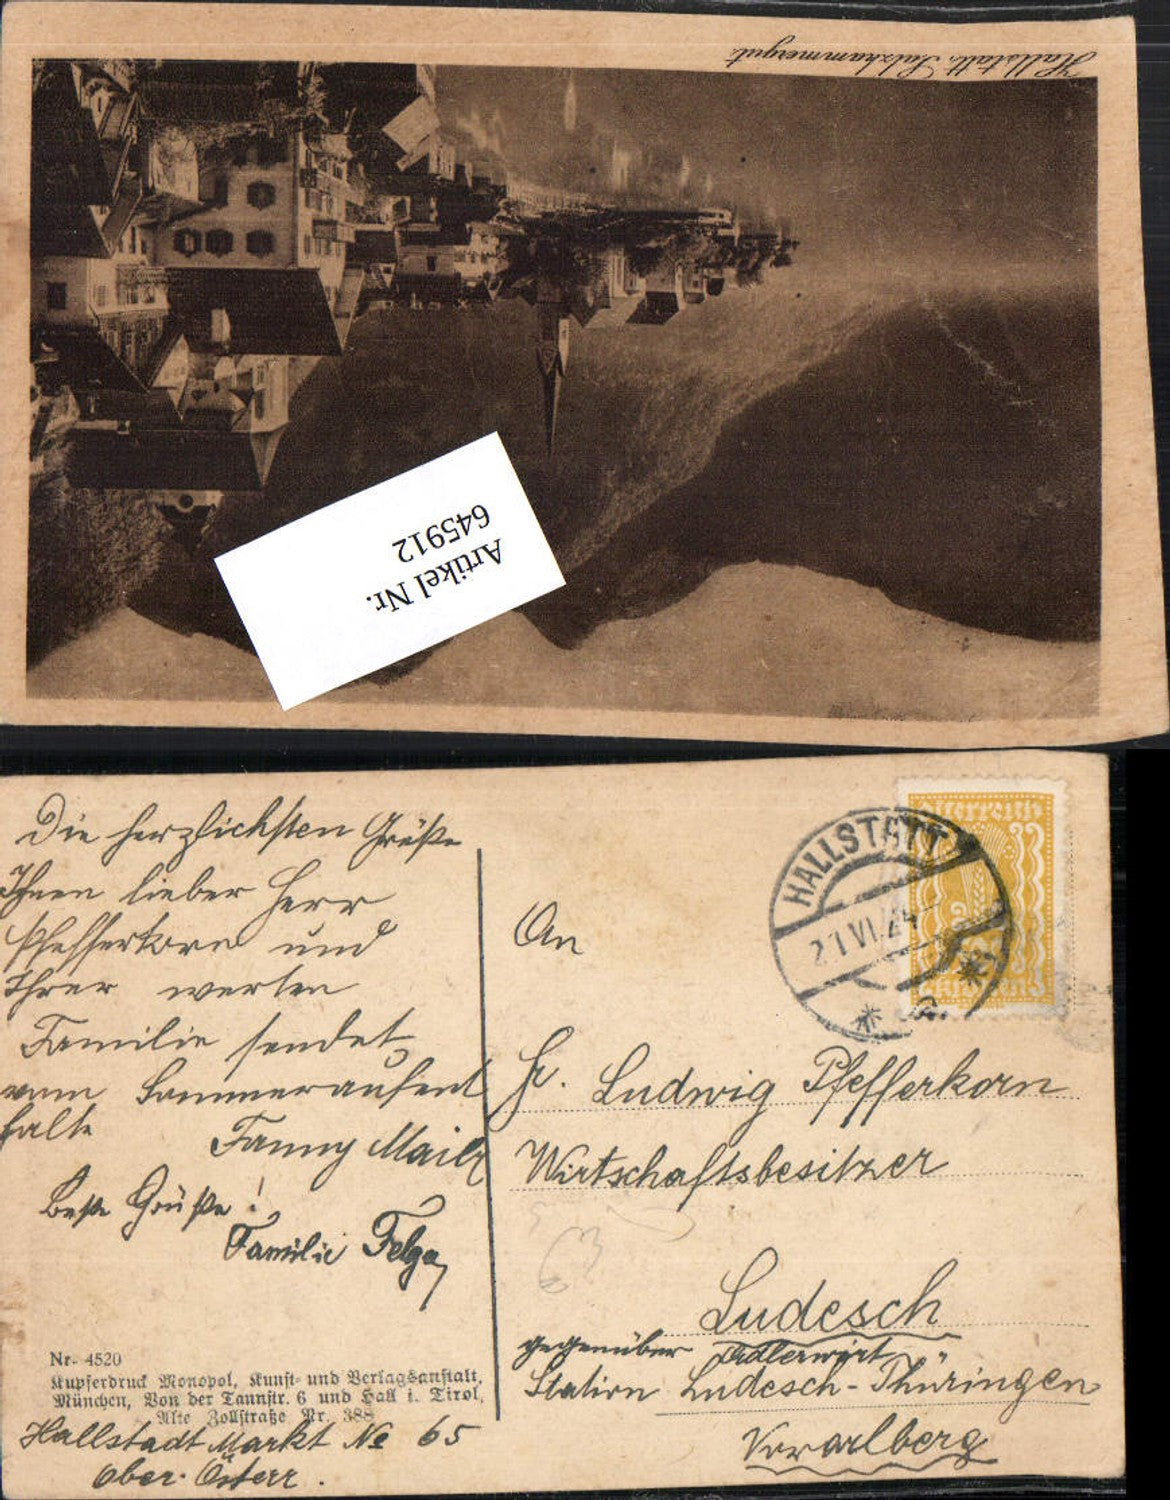 Hallstatt, Salzkammergut.
Artikel Nr.
645912
Die herzlichsten Grüße
Ihnen lieber Herr
Pfefferkorn und
Ihrer werten
Familie sendet
vom Sommeraufent
halte
Fanny Mailz
Beste Grüße!
Familie Felga
Nr. 4520
Kupferdruck Monopol, Kunst- und Verlagsanstalt,
München, Von der Tannstr. 6 und Hall i. Tirol,
Alte Zollstraße Nr. 388
Hallstadt Markt No 65
Ober. Österr.
Österreich
HALLSTATT
21.VI.24
An
Hr. Ludwig Pfefferkorn
Wirtschaftsbesitzer
Ludesch
gegenüber Adlerwirt
Station Ludesch-Thüringen
Vorarlberg